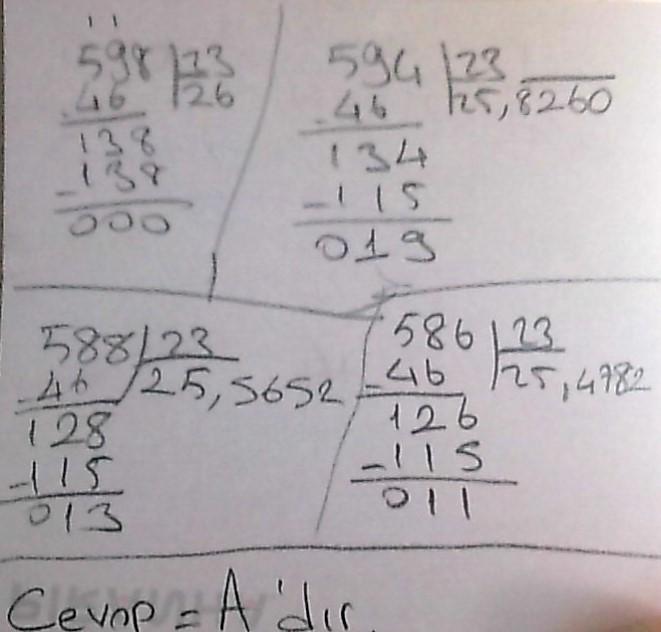 598 | 23
-46 | 26
138
-138
000
594 | 23
-46 | 25,8260
134
-115
019
588 | 23
-46 | 25,5652
128
-115
013
586 | 23
-46 | 25,4782
126
-115
011
Cevap = A'dır.